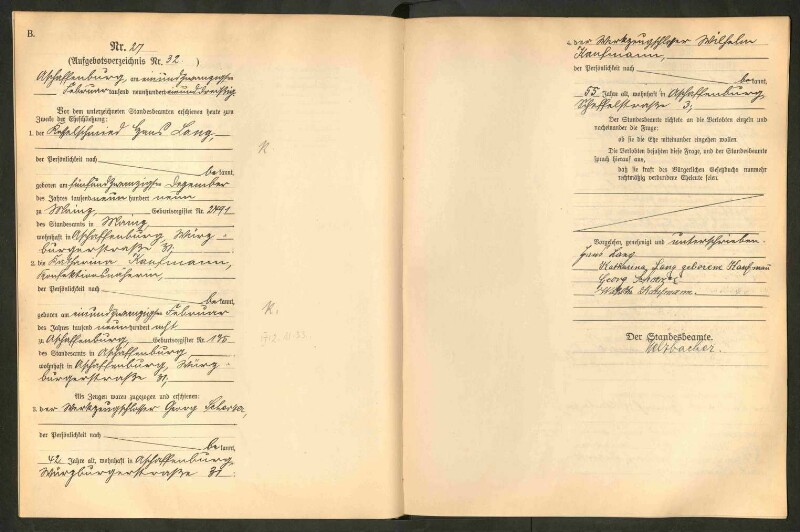 B.
Nr. 27
(Aufgebotsverzeichnis Nr. 32 )
Aschaffenburg, am einundzwanzigsten
Februar tausend neunhundert einunddreißig
Vor dem unterzeichneten Standesbeamten erschienen heute zum
Zwecke der Eheschließung:
1. der Kesselschmied Hans Lang,
der Persönlichkeit nach
bekannt,
geboren am fünfundzwanzigsten Dezember
des Jahres tausend neun hundert neun
zu Mainz, Geburtsregister Nr. 2491
des Standesamts in Mainz
wohnhaft in Aschaffenburg Würz-
burgerstraße 31.
2. die Katharina Kaufmann,
Konfektionsnäherin,
der Persönlichkeit nach
bekannt,
geboren am einundzwanzigsten Februar
des Jahres tausend neunhundert acht
zu Aschaffenburg, Geburtsregister Nr. 195
des Standesamts in Aschaffenburg
wohnhaft in Aschaffenburg, Würz-
burgerstraße 31.
Als Zeugen waren zugezogen und erschienen:
3. der Werkzeugschlosser Georg
der Persönlichkeit nach
bekannt,
42 Jahre alt, wohnhaft in Aschaffenburg
Würzburgerstraße 31.
K.
K.
4. der Werkzeugschlosser Wilhelm
Kaufmann,
der Persönlichkeit nach
bekannt,
55 Jahre alt, wohnhaft in Aschaffenburg
Scheffelstraße 3,
Der Standesbeamte richtete an die Verlobten einzeln und
nacheinander die Frage:
ob sie die Ehe miteinander eingehen wollen.
Die Verlobten bejahten diese Frage, und der Standesbeamte
sprach hierauf aus,
daß sie kraft des Bürgerlichen Gesetzbuchs nunmehr
rechtmäßig verbundene Eheleute seien.
Vorgelesen, genehmigt und unterschrieben.
Hans Lang
Katharina Lang geborene Kaufmann
Georg
Kaufmann.
Der Standesbeamte.